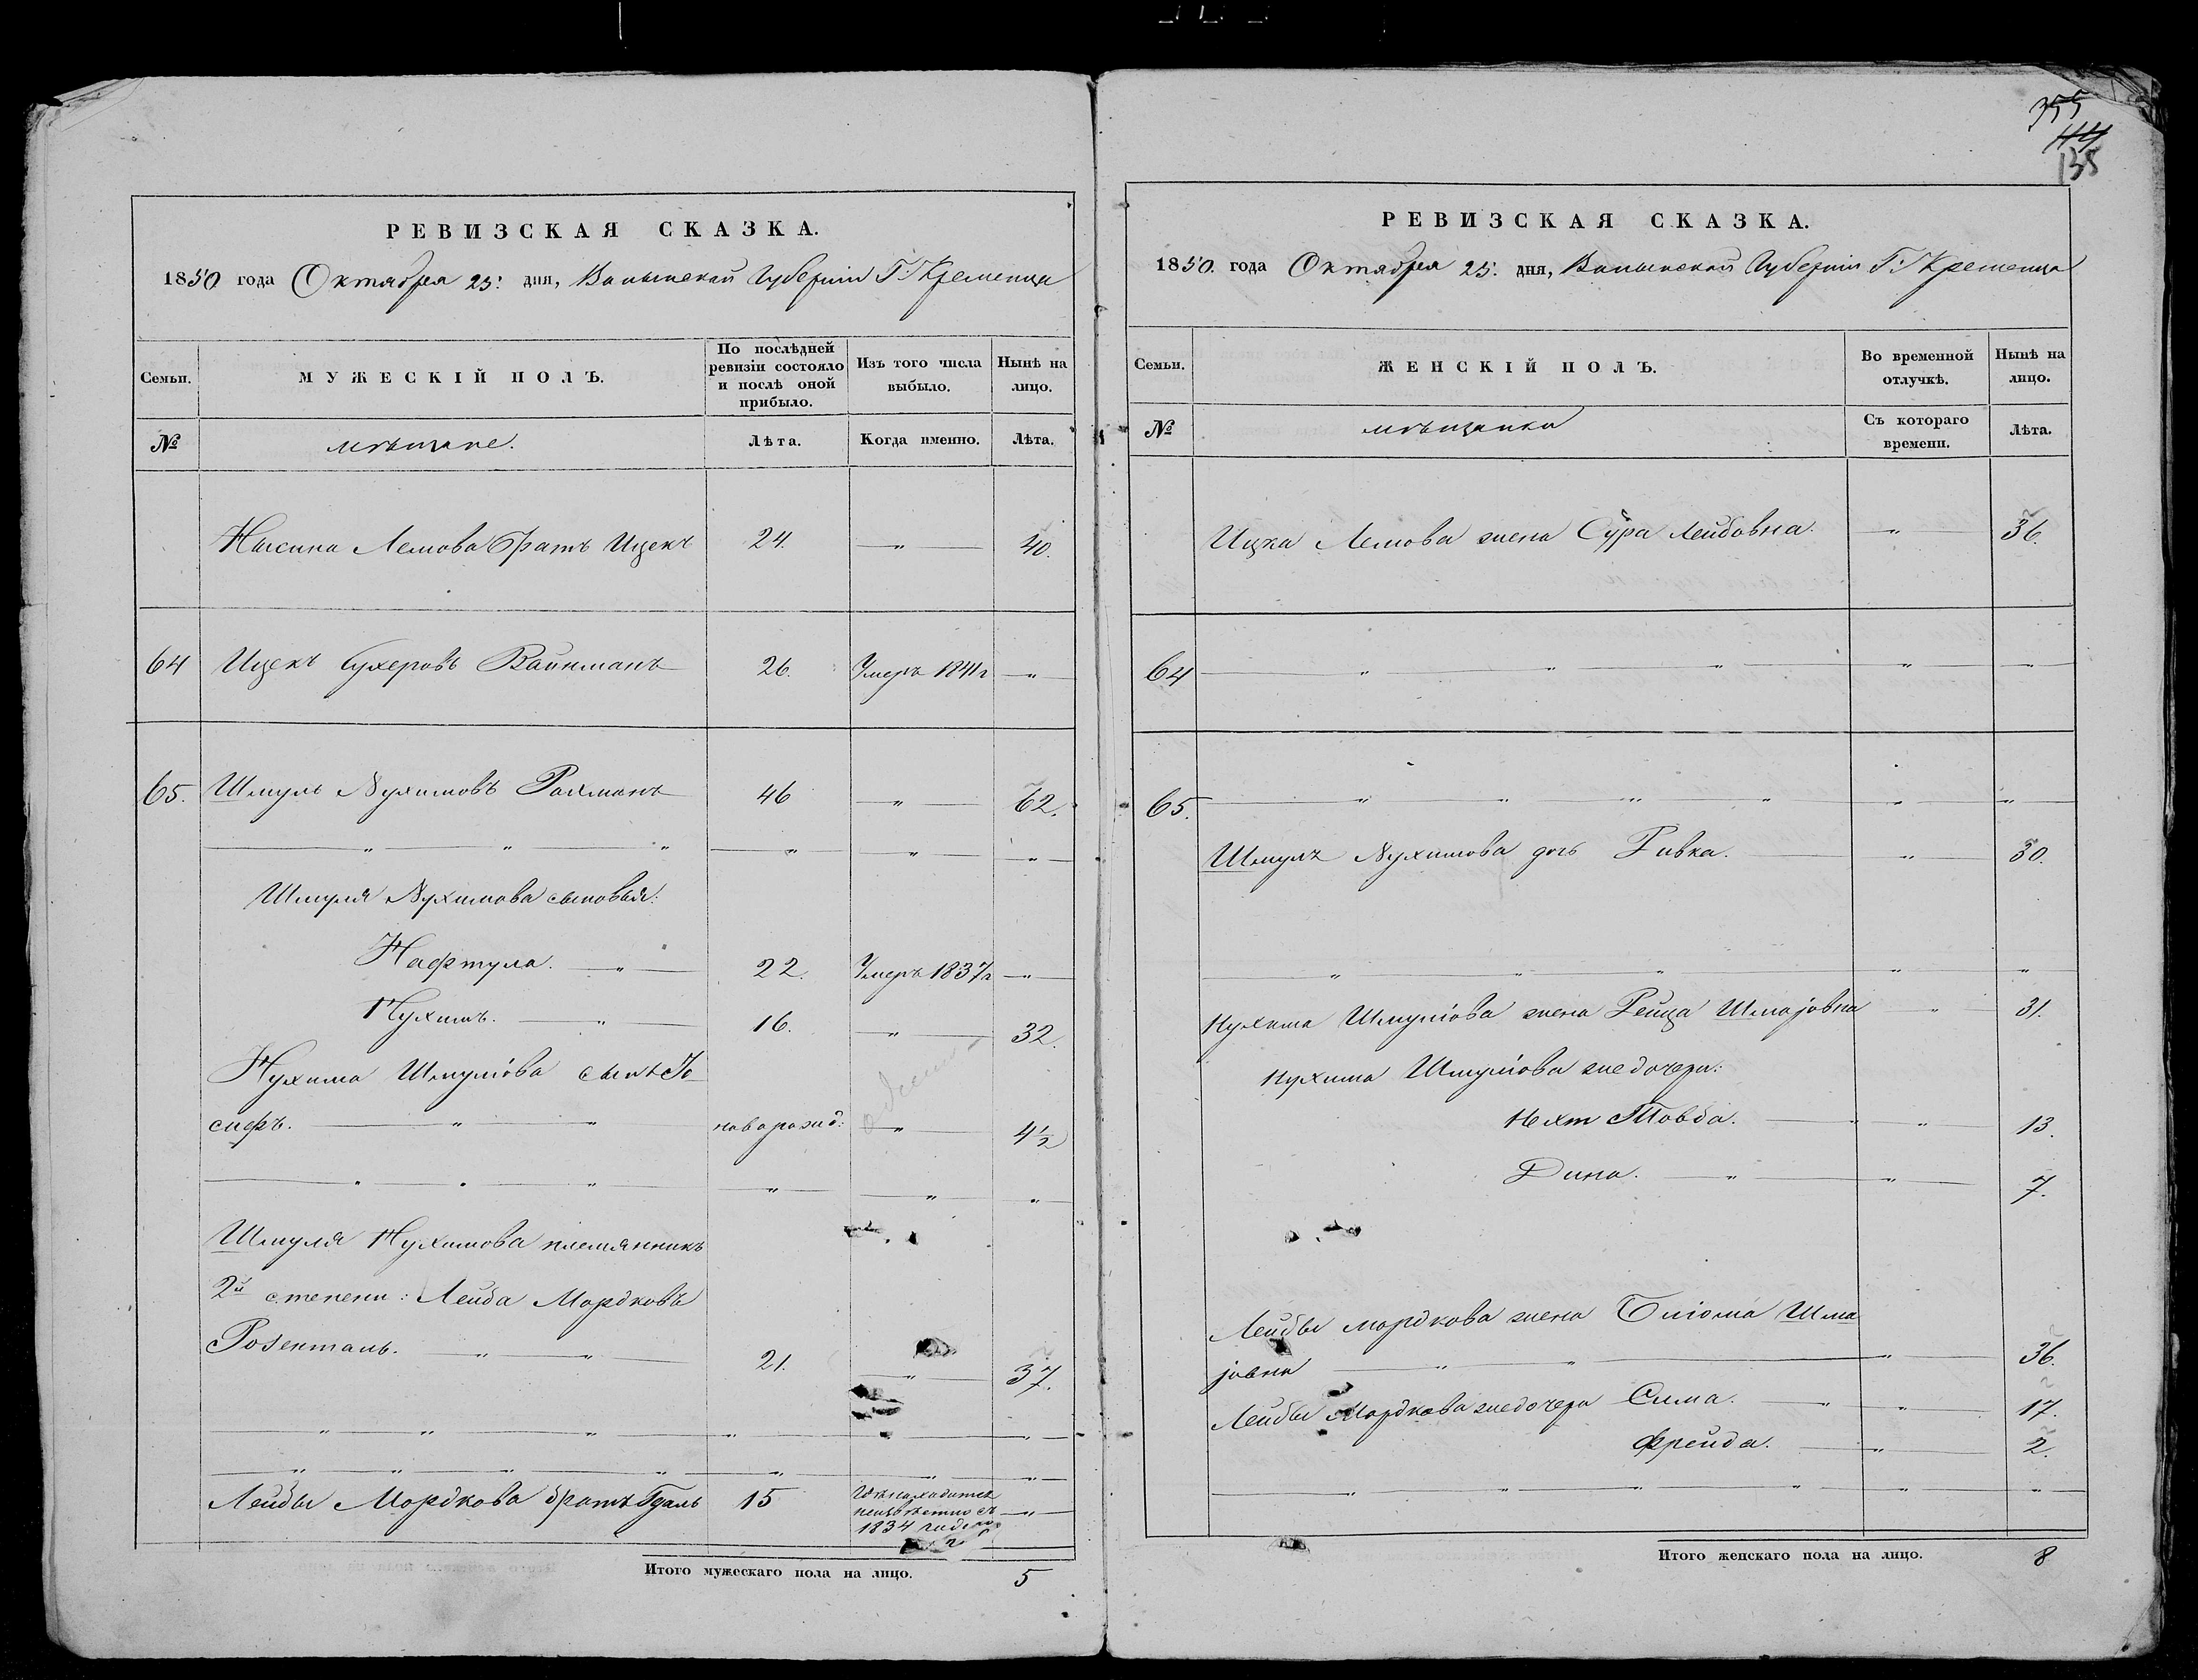 РЕВИЗСКАЯ СКАЗКА.
1850 года Октября 25: дня, Волынской Губернiи Г. Кременца
Семьи.
МУЖЕСКІЙ ПОЛЪ.
По послѣдней ревизіи состояло и послѣ оной прибыло.
Изъ того числа выбыло.
Нынѣ на лицо.
№
мѣщане.
Лѣта.
Когда именно.
Лѣта.
Нысина Лемова братъ Ицекъ 24. — „ — 40.
64 Ицекъ Сухеровъ Вайнманъ 26. Умеръ 1841г — „ —
65. Шмуль Нухимовъ Рохманъ 46 — „ — 62.
Шмуля Нухимова сыновья:
Нафтула. — „ — 22. Умеръ 1837г — „ —
Нухимъ. — „ — 16. — „ — 32.
Нухима Шмулiова сынъ Іо
сифъ. — „ — „ новорожд: — „ — 4½
Шмуля Нухимова племянникъ
2й степени: Лейба Мордковъ
Розенталь. — „ — „ — 21. — „ — 37.
Лейбы Мордкова братъ Гдаль 15 Гдѣ находится
неизвѣстно съ — „ —
1834 года
Итого мужескаго пола на лицо. 5
355
135
РЕВИЗСКАЯ СКАЗКА.
1850. года Октября 25: дня, Волынской Губернiи Г. Кременца
Семьи.
ЖЕНСКІЙ ПОЛЪ.
Во временной отлучкѣ.
Нынѣ на лицо.
№
мѣщанки
Съ котораго времени.
Лѣта.
Ицка Лемова жена Сура Лейбовна. — „ — 36.
64 — „ — „ — „ — „ — „ —
65. — „ — „ — „ — „ — „ — „ —
Шмуля Нухимова дочь Ривка. — „ — 30.
Нухима Шмулiова жена Рейца Шмаjовна „ 31.
Нухима Шмулiова же дочери:
Нехт Товба. — „ — „ — 13.
Дина. — „ — „ — 7.
Лейбы Мордкова жена Блюма Шма
jовна — „ — „ — „ — 36.
Лейбы Мордкова же дочери Сима. — „ — „ — 17.
Фрейда. — „ — 2.
Итого женскаго пола на лицо. 8